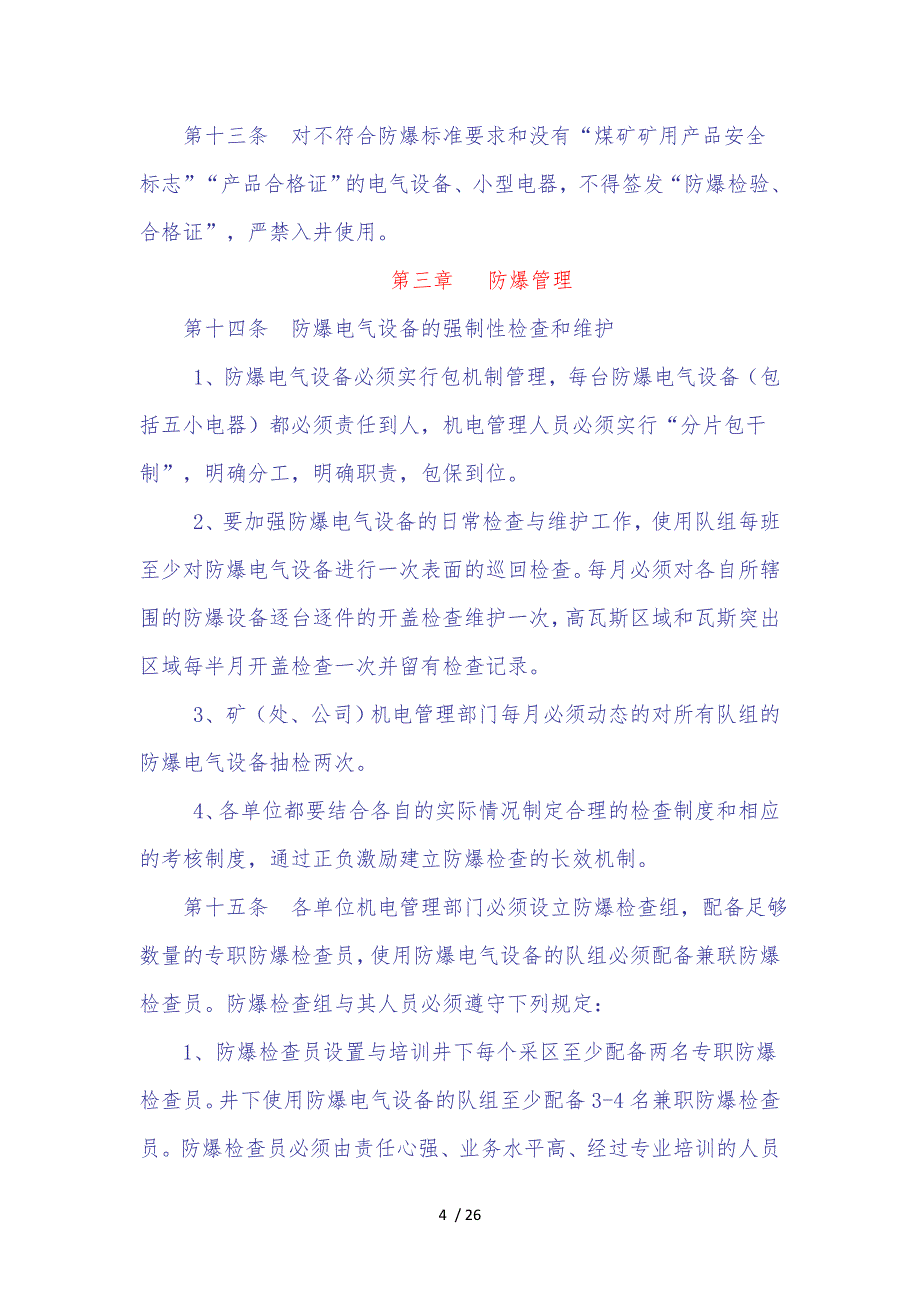 第十三条　对不符合防爆标准要求和没有“煤矿矿用产品安全
标志”“产品合格证”的电气设备、小型电器，不得签发“防爆检验、
合格证”，严禁入井使用。
第三章　防爆管理
第十四条　防爆电气设备的强制性检查和维护
1、防爆电气设备必须实行包机制管理，每台防爆电气设备（包
括五小电器）都必须责任到人，机电管理人员必须实行“分片包干
制”，明确分工，明确职责，包保到位。
2、要加强防爆电气设备的日常检查与维护工作，使用队组每班
至少对防爆电气设备进行一次表面的巡回检查。每月必须对各自所辖
围的防爆设备逐台逐件的开盖检查维护一次，高瓦斯区域和瓦斯突出
区域每半月开盖检查一次并留有检查记录。
3、矿（处、公司）机电管理部门每月必须动态的对所有队组的
防爆电气设备抽检两次。
4、各单位都要结合各自的实际情况制定合理的检查制度和相应
的考核制度，通过正负激励建立防爆检查的长效机制。
第十五条　各单位机电管理部门必须设立防爆检查组，配备足够
数量的专职防爆检查员，使用防爆电气设备的队组必须配备兼联防爆
检查员。防爆检查组与其人员必须遵守下列规定：
1、防爆检查员设置与培训井下每个采区至少配备两名专职防爆
检查员。井下使用防爆电气设备的队组至少配备 3-4 名兼职防爆检查
员。防爆检查员必须由责任心强、业务水平高、经过专业培训的人员
4 / 26